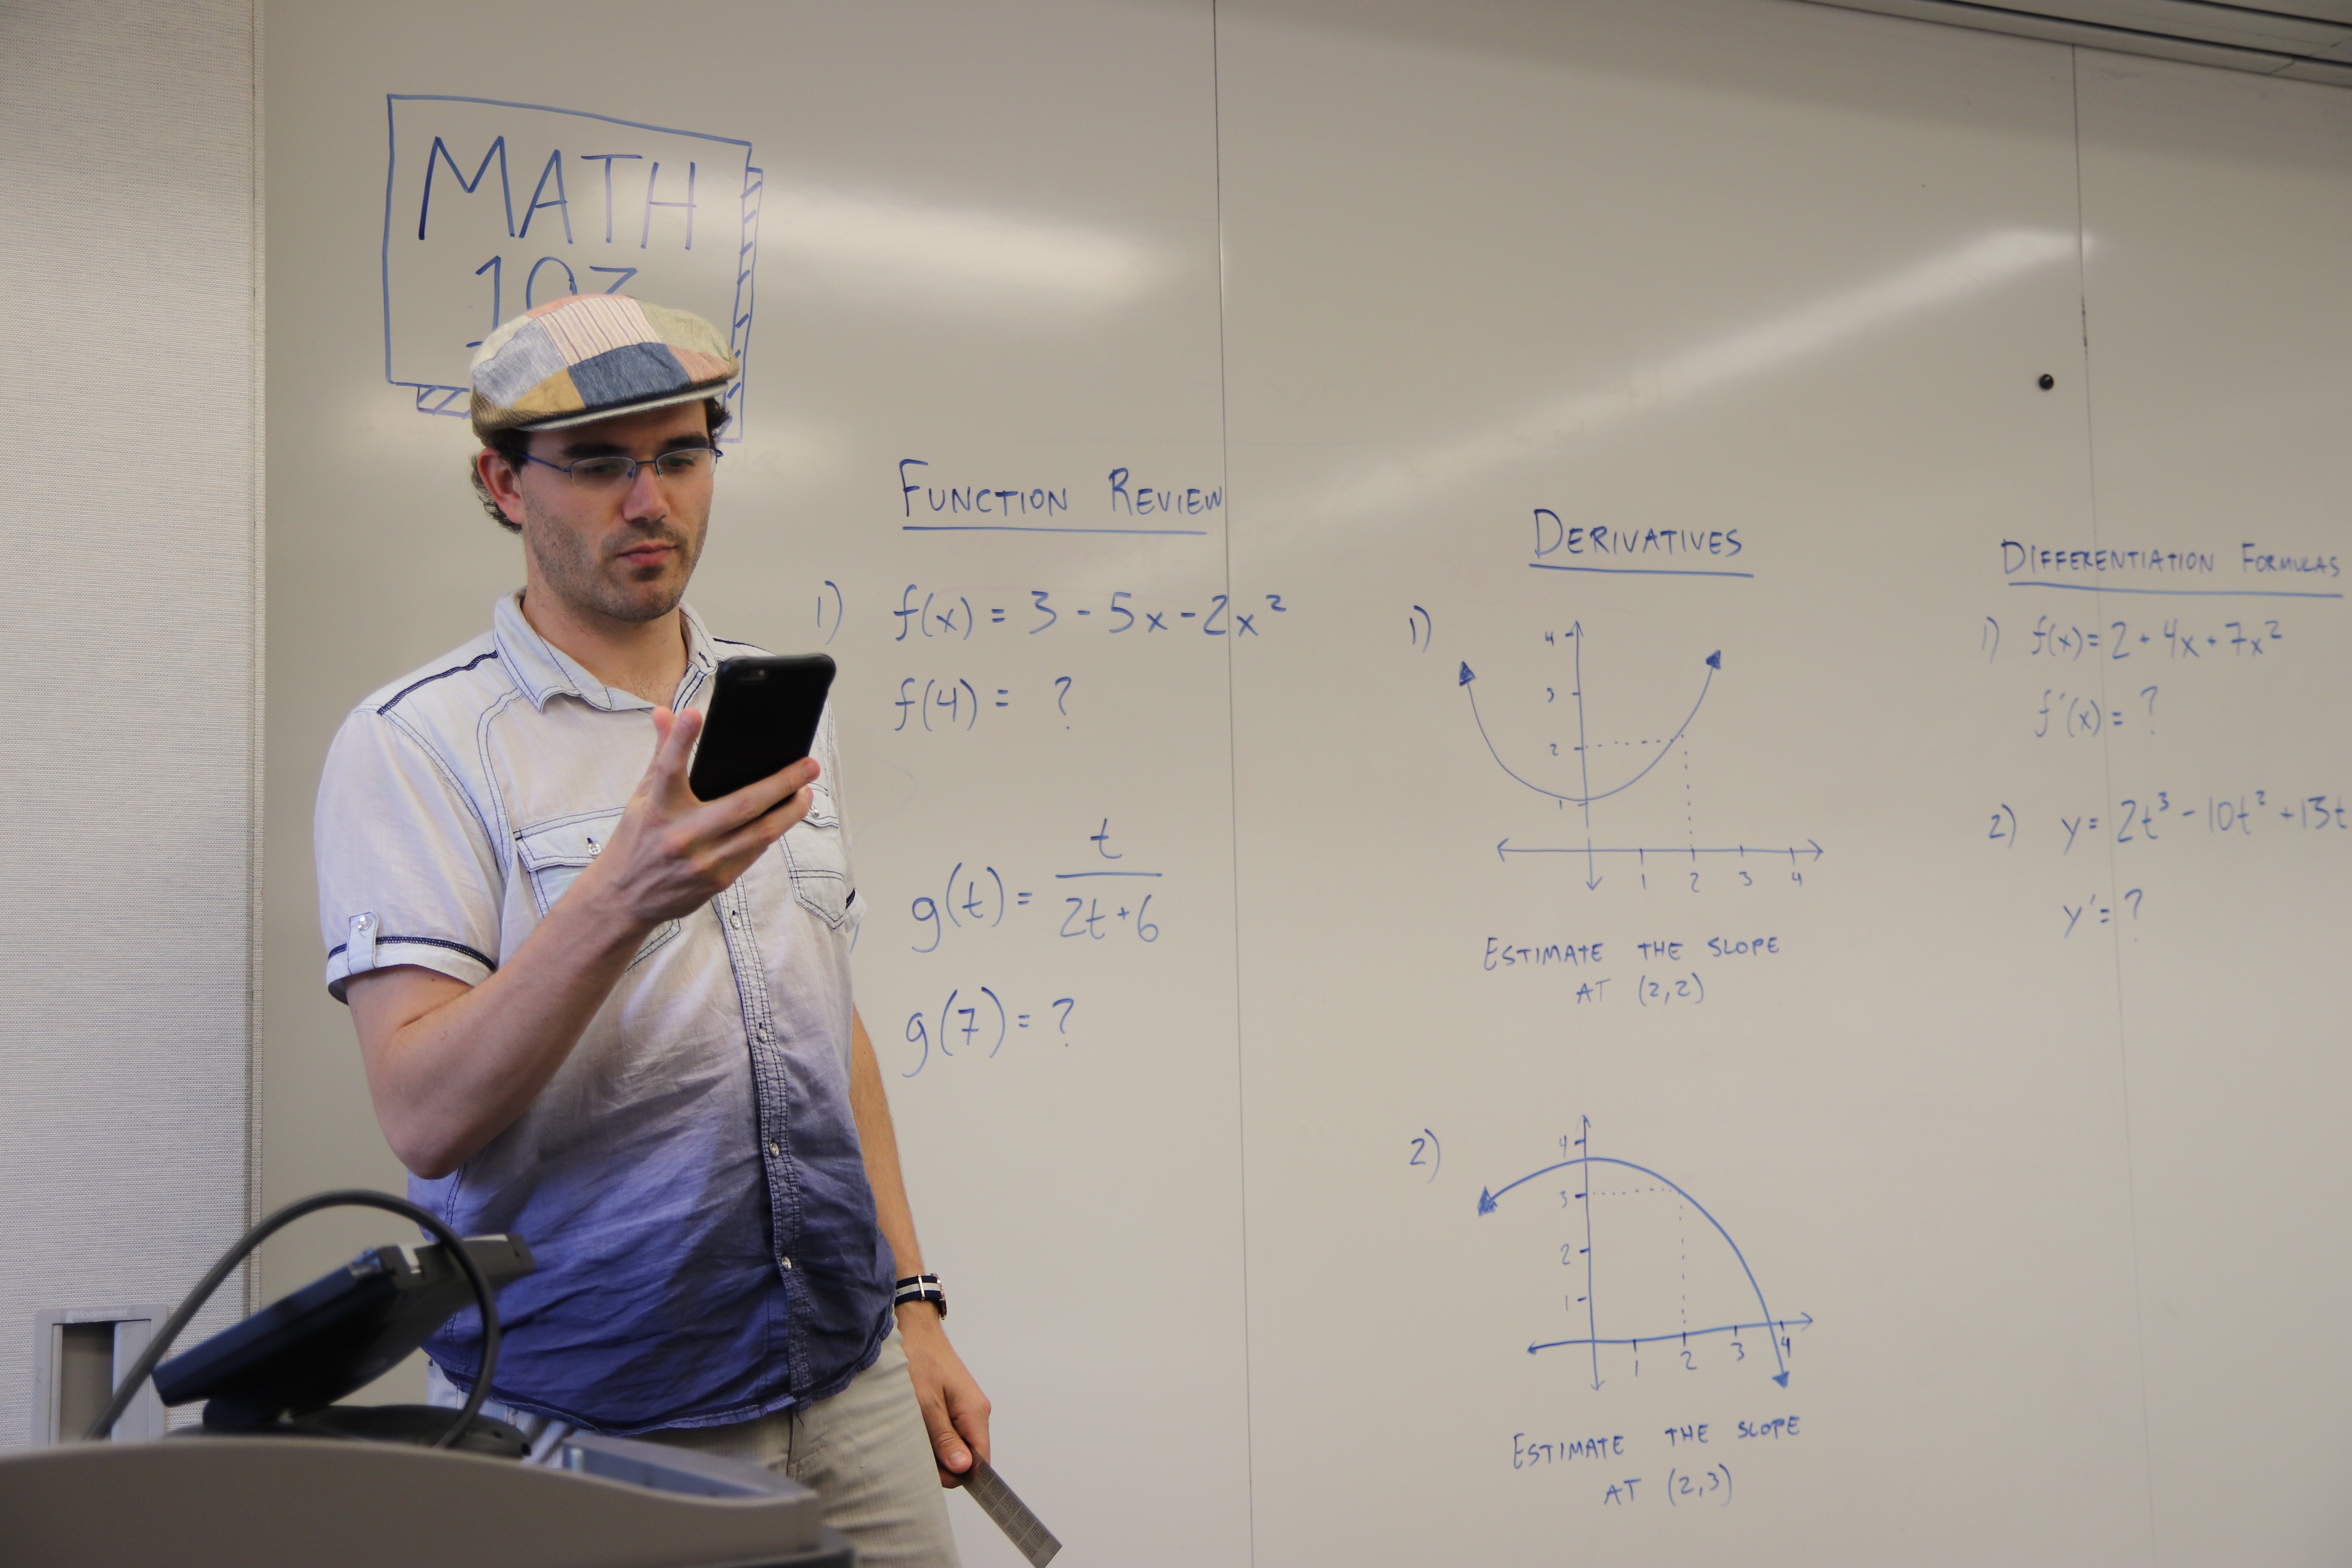 MATH
FUNCTION REVIEW
1) f(x) = 3 - 5x - 2x²
f(4) = ?
g(t) = t/(2t+6)
g(7) = ?
DERIVATIVES
1)
4
3
2
1
1 2 3 4
ESTIMATE THE SLOPE
AT (2,2)
2)
4
3
2
1
1 2 3 4
ESTIMATE THE SLOPE
AT (2,3)
DIFFERENTIATION FORMULAS
1) f(x) = 2 + 4x + 7x²
f'(x) = ?
2) y = 2t³ - 10t² + 13t
y' = ?